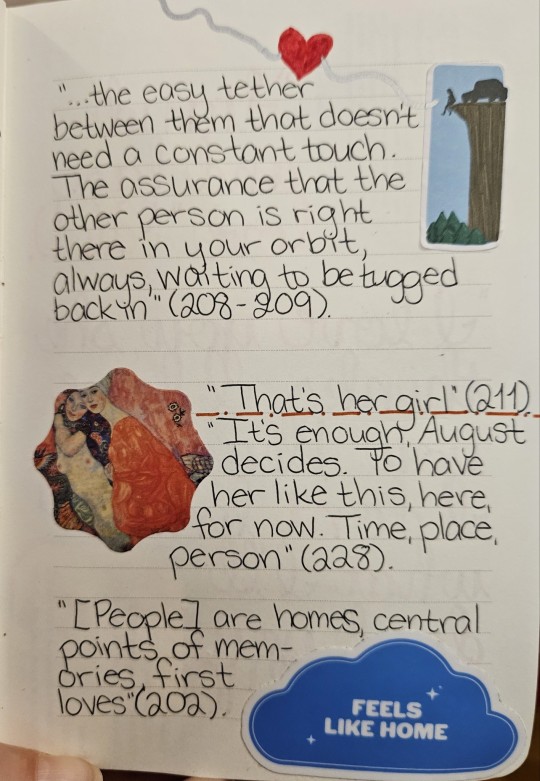 "...the easy tether
between them that doesn't
need a constant touch.
The assurance that the
other person is right
there in your orbit,
always, waiting to be tugged
back in" (208-209).
"...That's her girl" (211)
"It's enough, August
decides. To have
her like this, here,
for now. Time, place,
person" (228).
"[People] are homes, central
points of mem-
ories, first
loves" (202).
FEELS
LIKE HOME